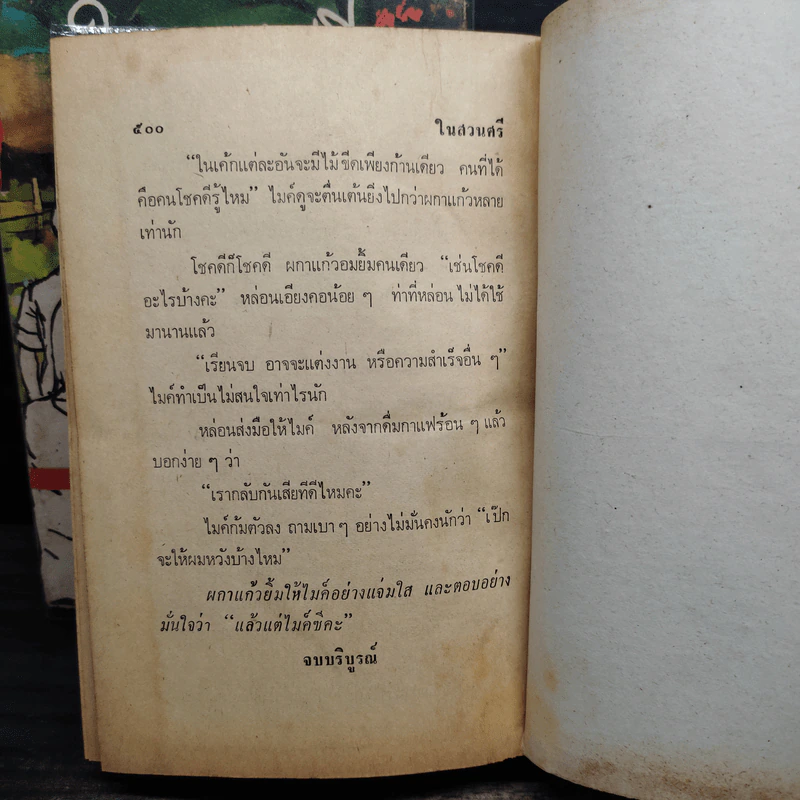 ๕๐๐ ในสวนศรี
“ในเค้กแต่ละอันจะมีไม้ขีดเพียงก้านเดียว คนที่ได้
คือคนโชคดีรู้ไหม” ไมค์ดูจะตื่นเต้นยิ่งไปกว่าผกาแก้วหลาย
เท่านัก
โชคดีก็โชคดี ผกาแก้วอมยิ้มคนเดียว “เช่นโชคดี
อะไรบ้างคะ” หล่อนเอียงคอน้อย ๆ ท่าที่หล่อนไม่ได้ใช้
มานานแล้ว
“เรียนจบ อาจจะแต่งงาน หรือความสำเร็จอื่น ๆ”
ไมค์ทำเป็นไม่สนใจเท่าไรนัก
หล่อนส่งมือให้ไมค์ หลังจากดื่มกาแฟร้อน ๆ แล้ว
บอกง่าย ๆ ว่า
“เรากลับกันเสียทีดีไหมคะ”
ไมค์ก้มตัวลง ถามเบา ๆ อย่างไม่มั่นคงนักว่า “เป๊ก
จะให้ผมหวังบ้างไหม”
ผกาแก้วยิ้มให้ไมค์อย่างแจ่มใส และตอบอย่าง
มั่นใจว่า “แล้วแต่ไมค์ซีคะ”
จบบริบูรณ์